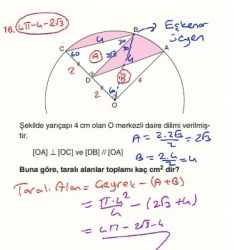 16. 4π-4-2√3
Eşkenar
üçgen
B
C
4
30
30
60
A
2√3
D
B
4
A
2
60
O
Şekilde yarıçapı 4 cm olan O merkezli daire dilimi verilmiş-
tir.
A = 2.2√3/2 = 2√3
[OA] ⊥ [OC] ve [DB] // [OA]
B = 2.4/2 = 4
Buna göre, taralı alanlar toplamı kaç cm² dir?
Taralı Alan = Çeyrek - (A+B)
= π.4²/4 - (2√3+4)
= 4π-2√3-4